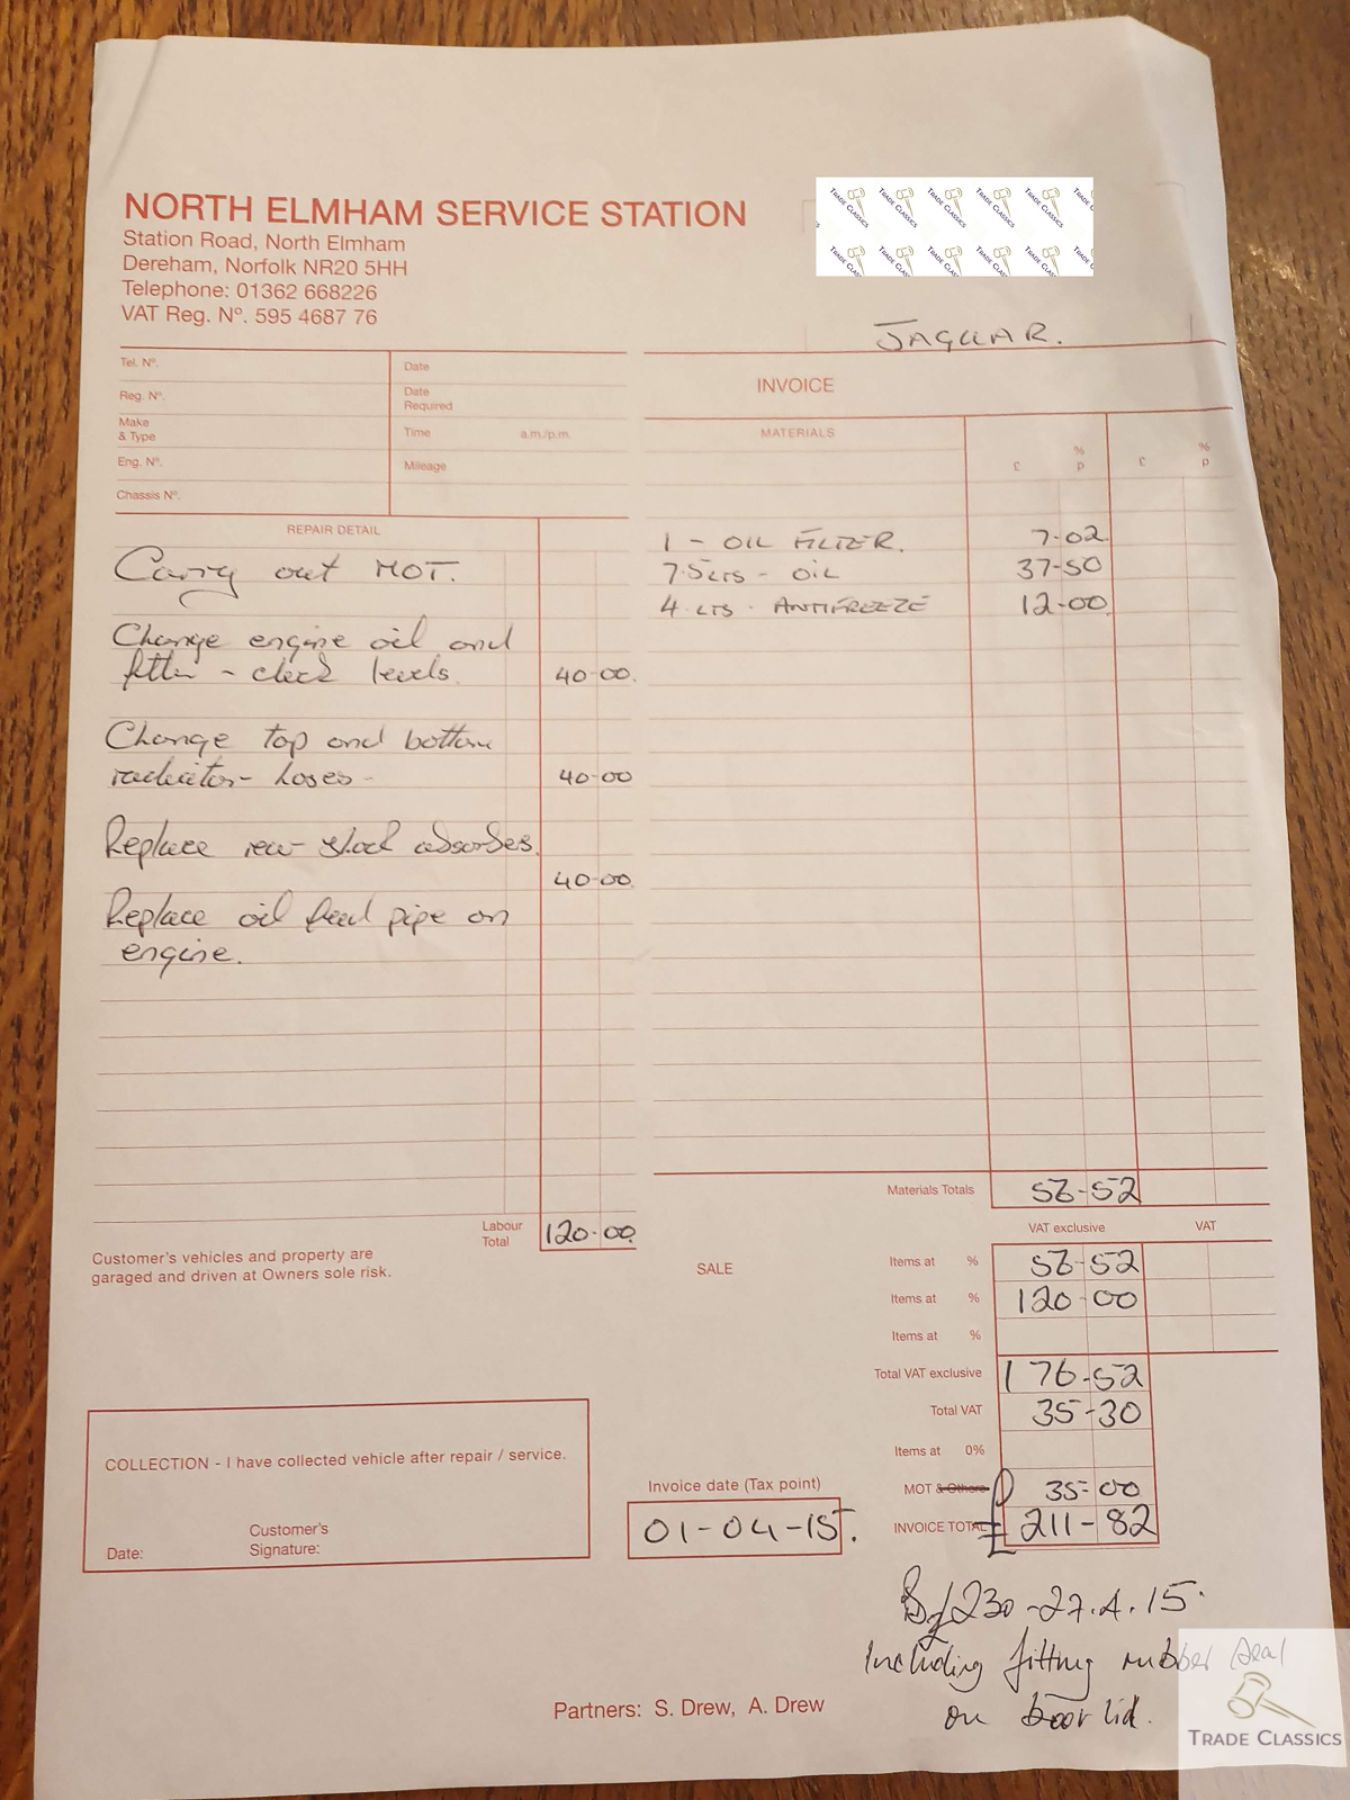 NORTH ELMHAM SERVICE STATION
Station Road, North Elmham
Dereham, Norfolk NR20 5HH
Telephone: 01362 668226
VAT Reg. Nº. 595 4687 76
JAGUAR.
Tel. Nº.
Date
Reg. Nº.
Date Required
Make & Type
Time a.m./p.m.
Eng. Nº.
Mileage
Chassis Nº.
REPAIR DETAIL
Carry out MOT.
Change engine oil and
filter - check levels. 40-00.
Change top and bottom
radiator hoses - 40-00
Replace rear shock absorbes.
40-00.
Replace oil feed pipe on
engine.
Labour Total 120-00.
Customer's vehicles and property are
garaged and driven at Owners sole risk.
INVOICE
MATERIALS
% %
£ p £ p
1 - OIL FILTER. 7-02.
7.5 LTS - OIL 37-50
4 LTS - ANTIFREEZE 12-00.
Materials Totals 56-52
VAT exclusive VAT
SALE
Items at % 56-52
Items at % 120-00
Items at %
Total VAT exclusive 176-52
Total VAT 35-30
Items at 0%
MOT & Others 35-00
INVOICE TOTAL £ 211-82
COLLECTION - I have collected vehicle after repair / service.
Date:
Customer's Signature:
Invoice date (Tax point)
01-04-15.
£230-27.4.15.
Including fitting rubber seal
on boot lid.
Partners: S. Drew, A. Drew
TRADE CLASSICS